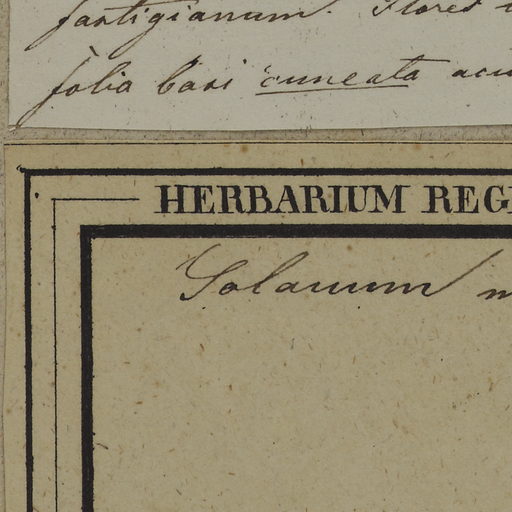 fastigianum. Flores
folia basi cuneata acu
HERBARIUM REGI
Solanum m